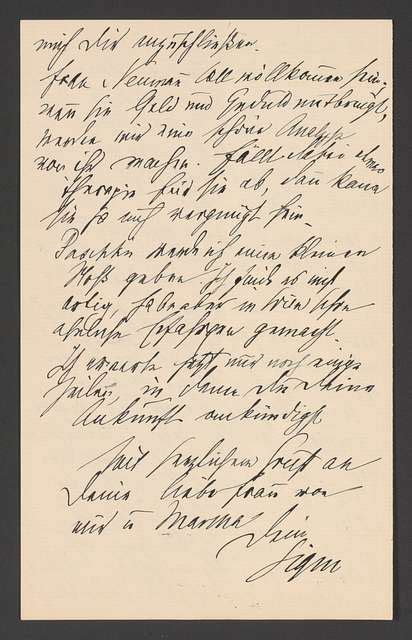 mich Dir anzuschließen.
Frau Neumann soll willkommen sein,
wenn sie Geld und Geduld mitbringt,
werden wir eine schöne Analyse
von ihr machen. Fällt dabei etwas
Therapie für sie ab, dann kann
sie ja auch vergnügt sein.
Paschkis werde ich einen kleinen
Stoß geben. Ich finde es nicht
artig, habe aber in Wien schon
ähnliche Erfahrungen gemacht.
Ich erwarte jetzt nur noch einige
Zeilen, in denen Du Deine
Ankunft ankündigst
Mit herzlichem Gruß an
Deine liebe Frau von
mir u Martha
Dein
Sigm